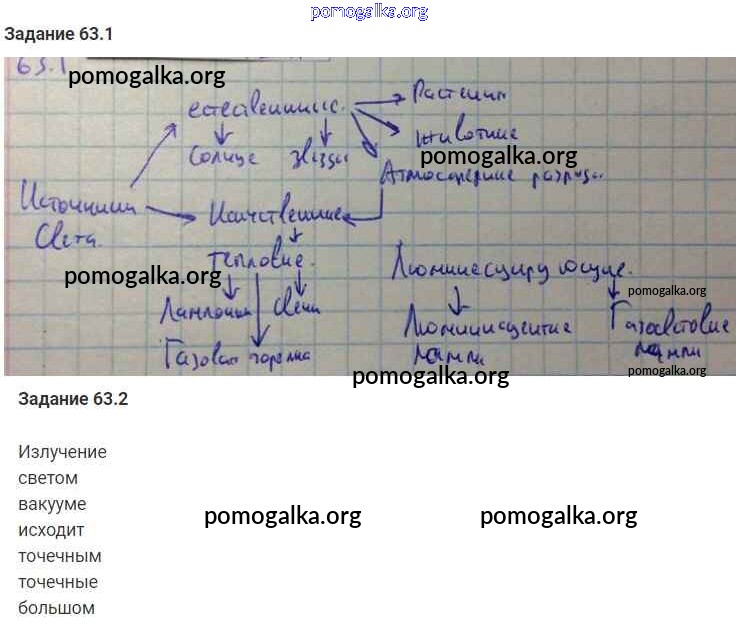 pomogalka.org
Задание 63.1
63.1
pomogalka.org
естественные. Растения
Солнце звезды животные
pomogalka.org
Атмосферные разряды.
Источники Искуственные
Света.
тепловые. Люминесцирующие.
pomogalka.org
pomogalka.org
Лампочки Свечи Люминисцентные Газосветовые
Газовая горелка лампы лампы
pomogalka.org
pomogalka.org
Задание 63.2
Излучение
светом
вакууме
pomogalka.org pomogalka.org
исходит
точечным
точечные
большом